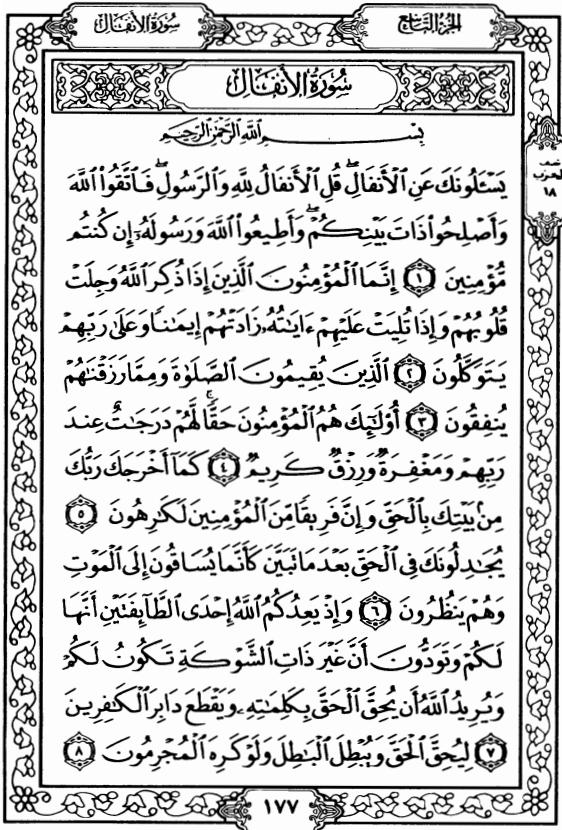 الجزء التاسع
سورة الأنفال
سُورَةُ الأَنفَالِ
بِسْمِ اللَّهِ الرَّحْمَٰنِ الرَّحِيمِ
يَسْـَٔلُونَكَ عَنِ ٱلْأَنفَالِ ۖ قُلِ ٱلْأَنفَالُ لِلَّهِ وَٱلرَّسُولِ ۖ فَٱتَّقُوا۟ ٱللَّهَ
نصف الحزب ١٨
وَأَصْلِحُوا۟ ذَاتَ بَيْنِكُمْ ۖ وَأَطِيعُوا۟ ٱللَّهَ وَرَسُولَهُۥٓ إِن كُنتُم
مُّؤْمِنِينَ ١ إِنَّمَا ٱلْمُؤْمِنُونَ ٱلَّذِينَ إِذَا ذُكِرَ ٱللَّهُ وَجِلَتْ
قُلُوبُهُمْ وَإِذَا تُلِيَتْ عَلَيْهِمْ ءَايَٰتُهُۥ زَادَتْهُمْ إِيمَٰنًا وَعَلَىٰ رَبِّهِمْ
يَتَوَكَّلُونَ ٢ ٱلَّذِينَ يُقِيمُونَ ٱلصَّلَوٰةَ وَمِمَّا رَزَقْنَٰهُمْ
يُنفِقُونَ ٣ أُو۟لَٰٓئِكَ هُمُ ٱلْمُؤْمِنُونَ حَقًّا ۚ لَّهُمْ دَرَجَٰتٌ عِندَ
رَبِّهِمْ وَمَغْفِرَةٌ وَرِزْقٌ كَرِيمٌ ٤ كَمَآ أَخْرَجَكَ رَبُّكَ
مِنۢ بَيْتِكَ بِٱلْحَقِّ وَإِنَّ فَرِيقًا مِّنَ ٱلْمُؤْمِنِينَ لَكَٰرِهُونَ ٥
يُجَٰدِلُونَكَ فِى ٱلْحَقِّ بَعْدَ مَا تَبَيَّنَ كَأَنَّمَا يُسَاقُونَ إِلَى ٱلْمَوْتِ
وَهُمْ يَنظُرُونَ ٦ وَإِذْ يَعِدُكُمُ ٱللَّهُ إِحْدَى ٱلطَّآئِفَتَيْنِ أَنَّهَا
لَكُمْ وَتَوَدُّونَ أَنَّ غَيْرَ ذَاتِ ٱلشَّوْكَةِ تَكُونُ لَكُمْ
وَيُرِيدُ ٱللَّهُ أَن يُحِقَّ ٱلْحَقَّ بِكَلِمَٰتِهِۦ وَيَقْطَعَ دَابِرَ ٱلْكَٰفِرِينَ
٧ لِيُحِقَّ ٱلْحَقَّ وَيُبْطِلَ ٱلْبَٰطِلَ وَلَوْ كَرِهَ ٱلْمُجْرِمُونَ ٨
١٧٧